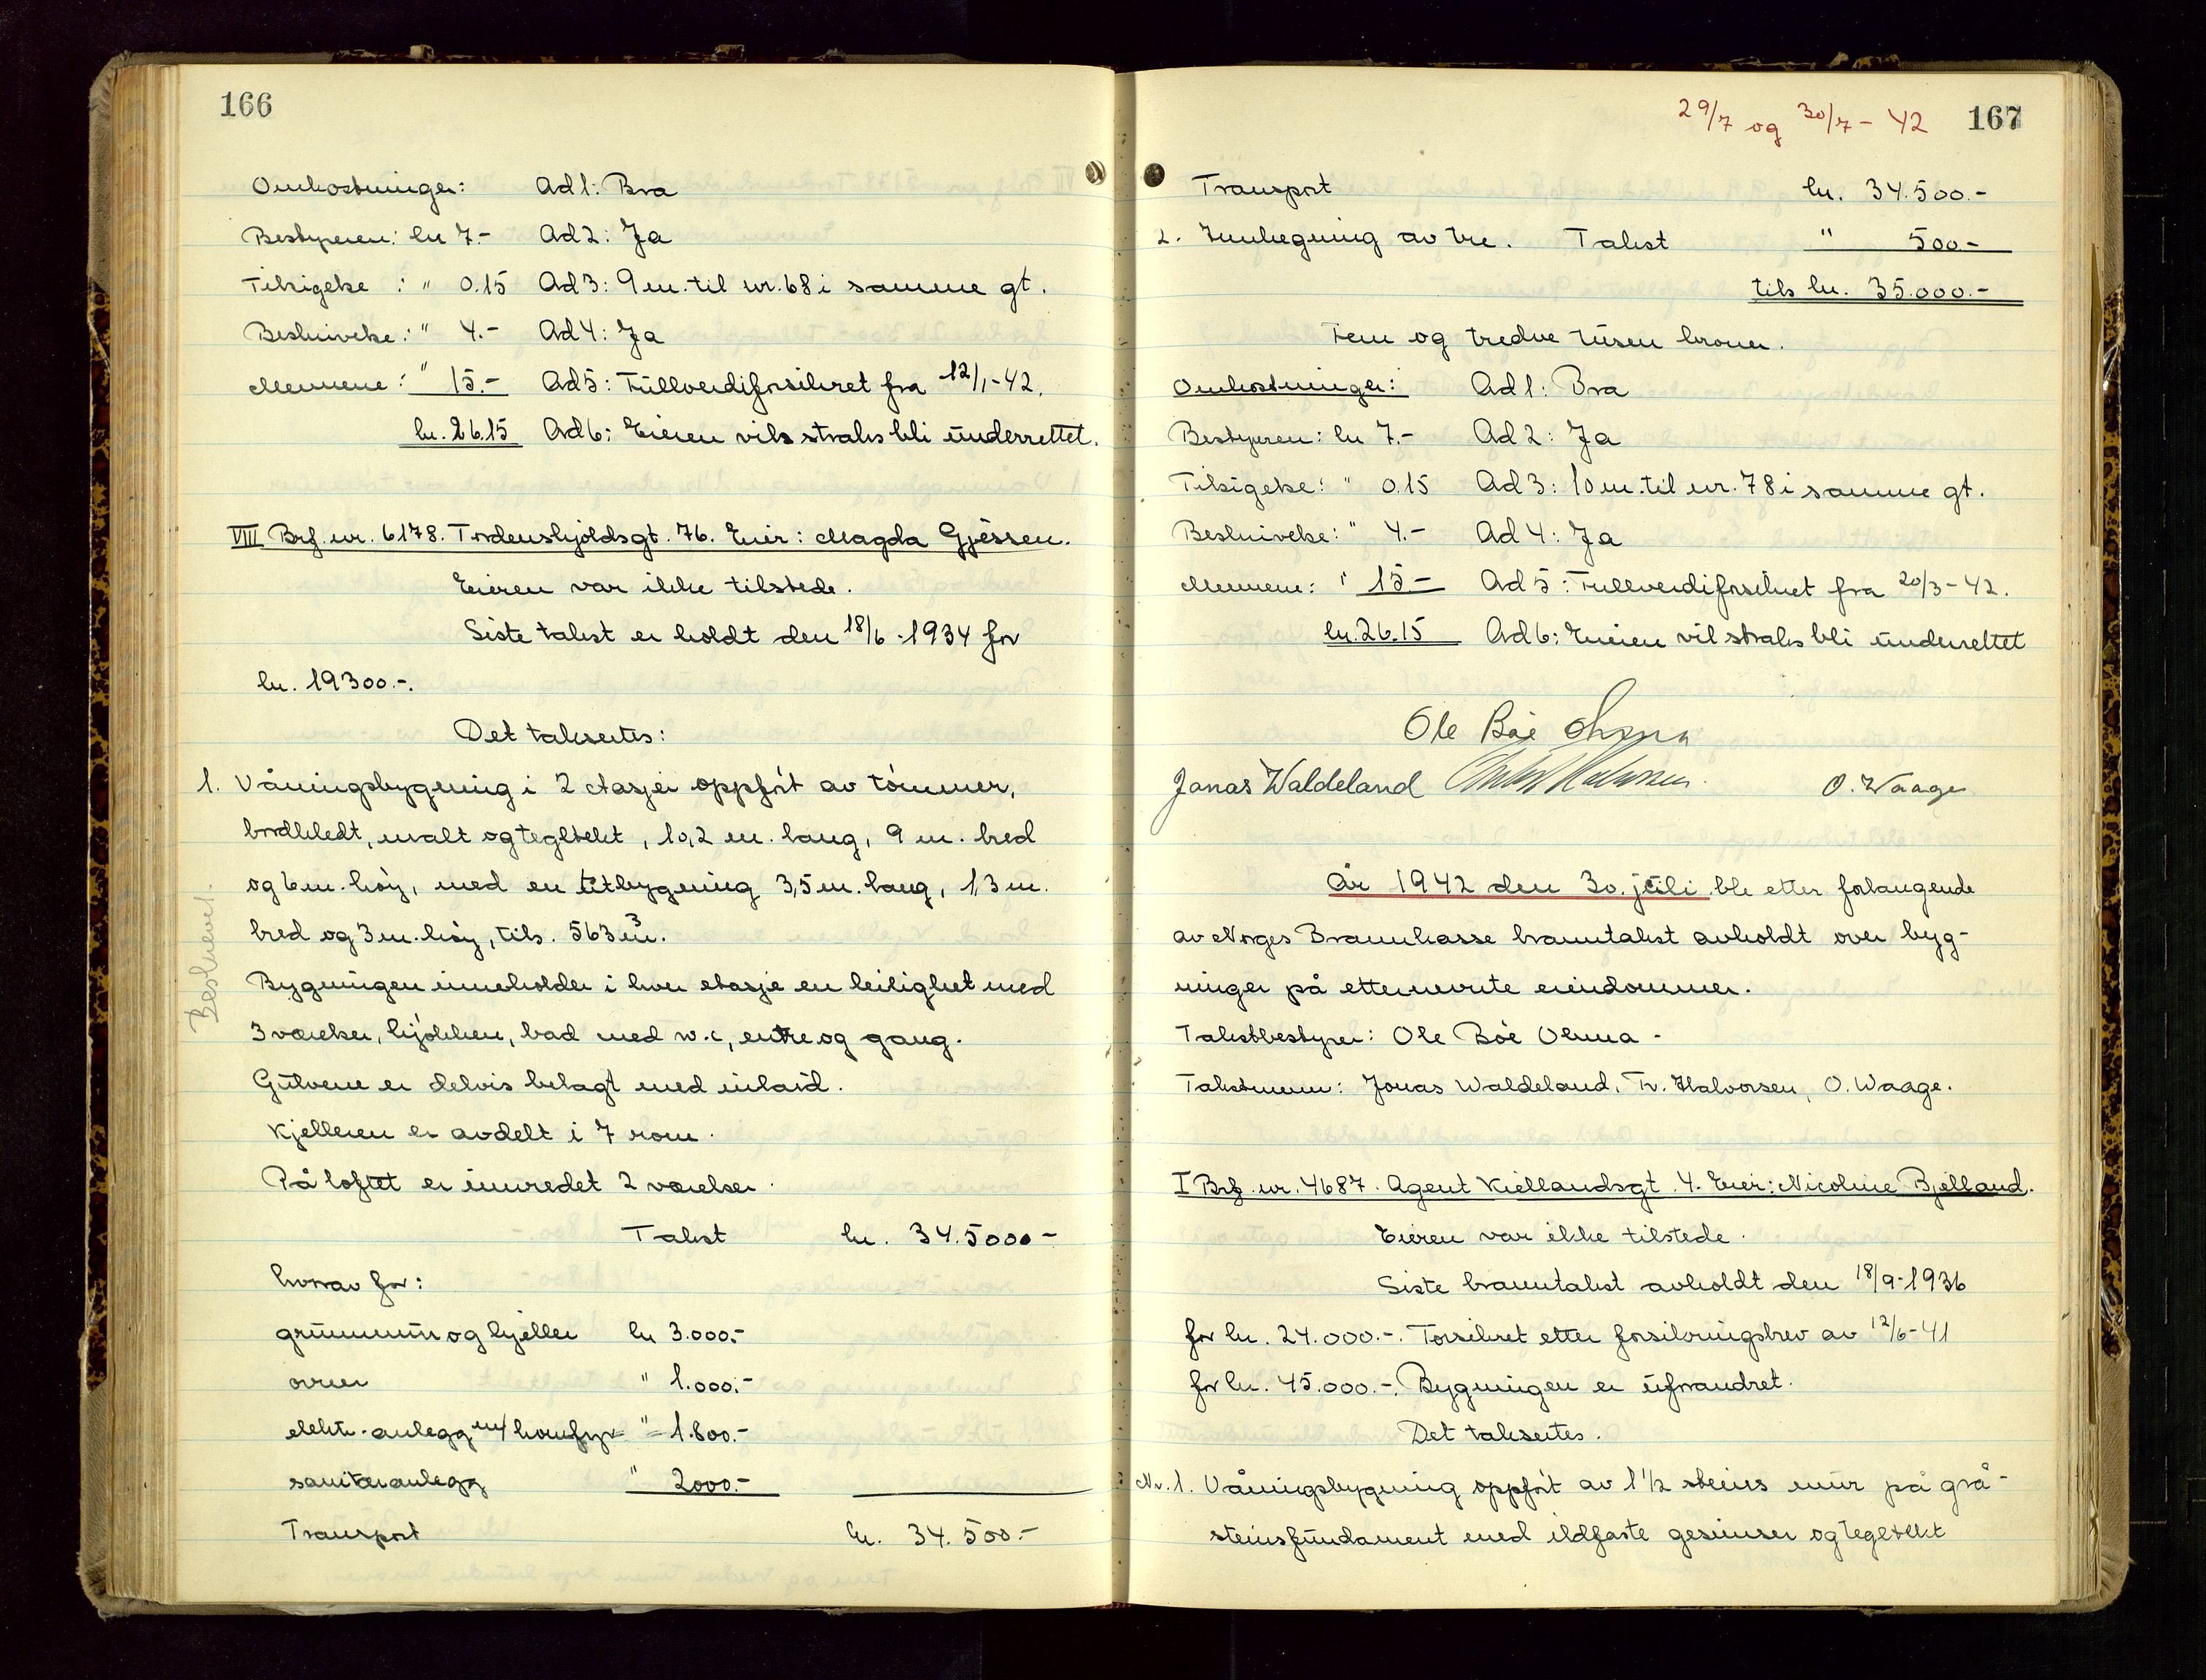 166
Omkostninger: Ad 1: Bra
Bestyreren: kr 7.- Ad 2: Ja
Tilsigelse : " 0.15 Ad 3: 9 m. til nr. 68 i samme gt.
Beskrivelse: " 4.- Ad 4: Ja
Mennene: " 15.- Ad 5: Fullverdiforsikret fra 12/1-42.
kr. 26.15 Ad 6: Eieren vils straks bli underrettet.
VIII Brf. nr. 6178. Tordenskjoldsgt. 76. Eier: Magda Gjessen.
Eieren var ikke tilstede.
Siste takst er holdt den 18/6-1934 for
kr. 19300.-.
Det takseres:
1. Våningsbygning i 2 etasjer oppfört av tömmer,
bordkledt, malt og tegltekt, 10,2 m. lang, 9 m. bred
og 6 m. höy, med en utbygning 3,5 m. lang, 1,3 m.
bred og 3 m. höy, tils. 563 m³.
Beskrevet.
Bygningen inneholder i hver etasje en leilighet med
3 værelser, kjökken, bad med w.c, entre og gang.
Gulvene er delvis belagt med inlaid.
Kjelleren er avdelt i 7 rom.
På loftet er innredet 2 værelser.
Takst kr. 34.5000-
hvorav for:
grunnmur og kjeller kr 3.000.-
ovner " 1.000.-
elektr. anlegg m/ komfyr " 1.800.-
sanitæranlegg " 2000.-
Transport kr. 34.500.-
29/7 og 30/7-42 167
Transport kr. 34.500.-
2. Innhegning av tre. Takst " 500.-
tils kr. 35.000.-
Fem og tredve tusen kroner.
Omkostninger: Ad 1: Bra
Bestyreren: kr 7.- Ad 2: Ja
Tilsigelse: " 0.15 Ad 3: 10 m. til nr. 78 i samme gt.
Beskrivelse: " 4.- Ad 4: Ja
Mennene: " 15.- Ad 5: Fullverdiforsikret fra 20/3-42.
kr. 26.15 Ad 6: Eieren vil straks bli underrettet
Ole Böe
Jonas Waldeland O. Waage
År 1942 den 30. juli ble etter forlangende
av Norges Brannkasse branntakst avholdt over byg-
ninger på etternevnte eiendommer.
Takstbestyrer: Ole Böe Olsna -
Takstmenn: Jonas Waldeland, Tr. Halvorsen, O. Waage.
I Brf. nr. 4687. Agent Kiellandsgt. 4. Eier: Nicoline Bjelland.
Eieren var ikke tilstede.
Siste branntakst avholdt den 18/9-1936
for kr. 24.000.-. Forsikret etter forsikringsbrev av 12/6-41
for kr. 45.000.-. Bygningen er uforandret.
Det takseres.
Nr. 1. Våningsbygning oppfört av 1 1/2 steins mur på grå-
steinsfundament med ildfaste gesimser og tegltekt